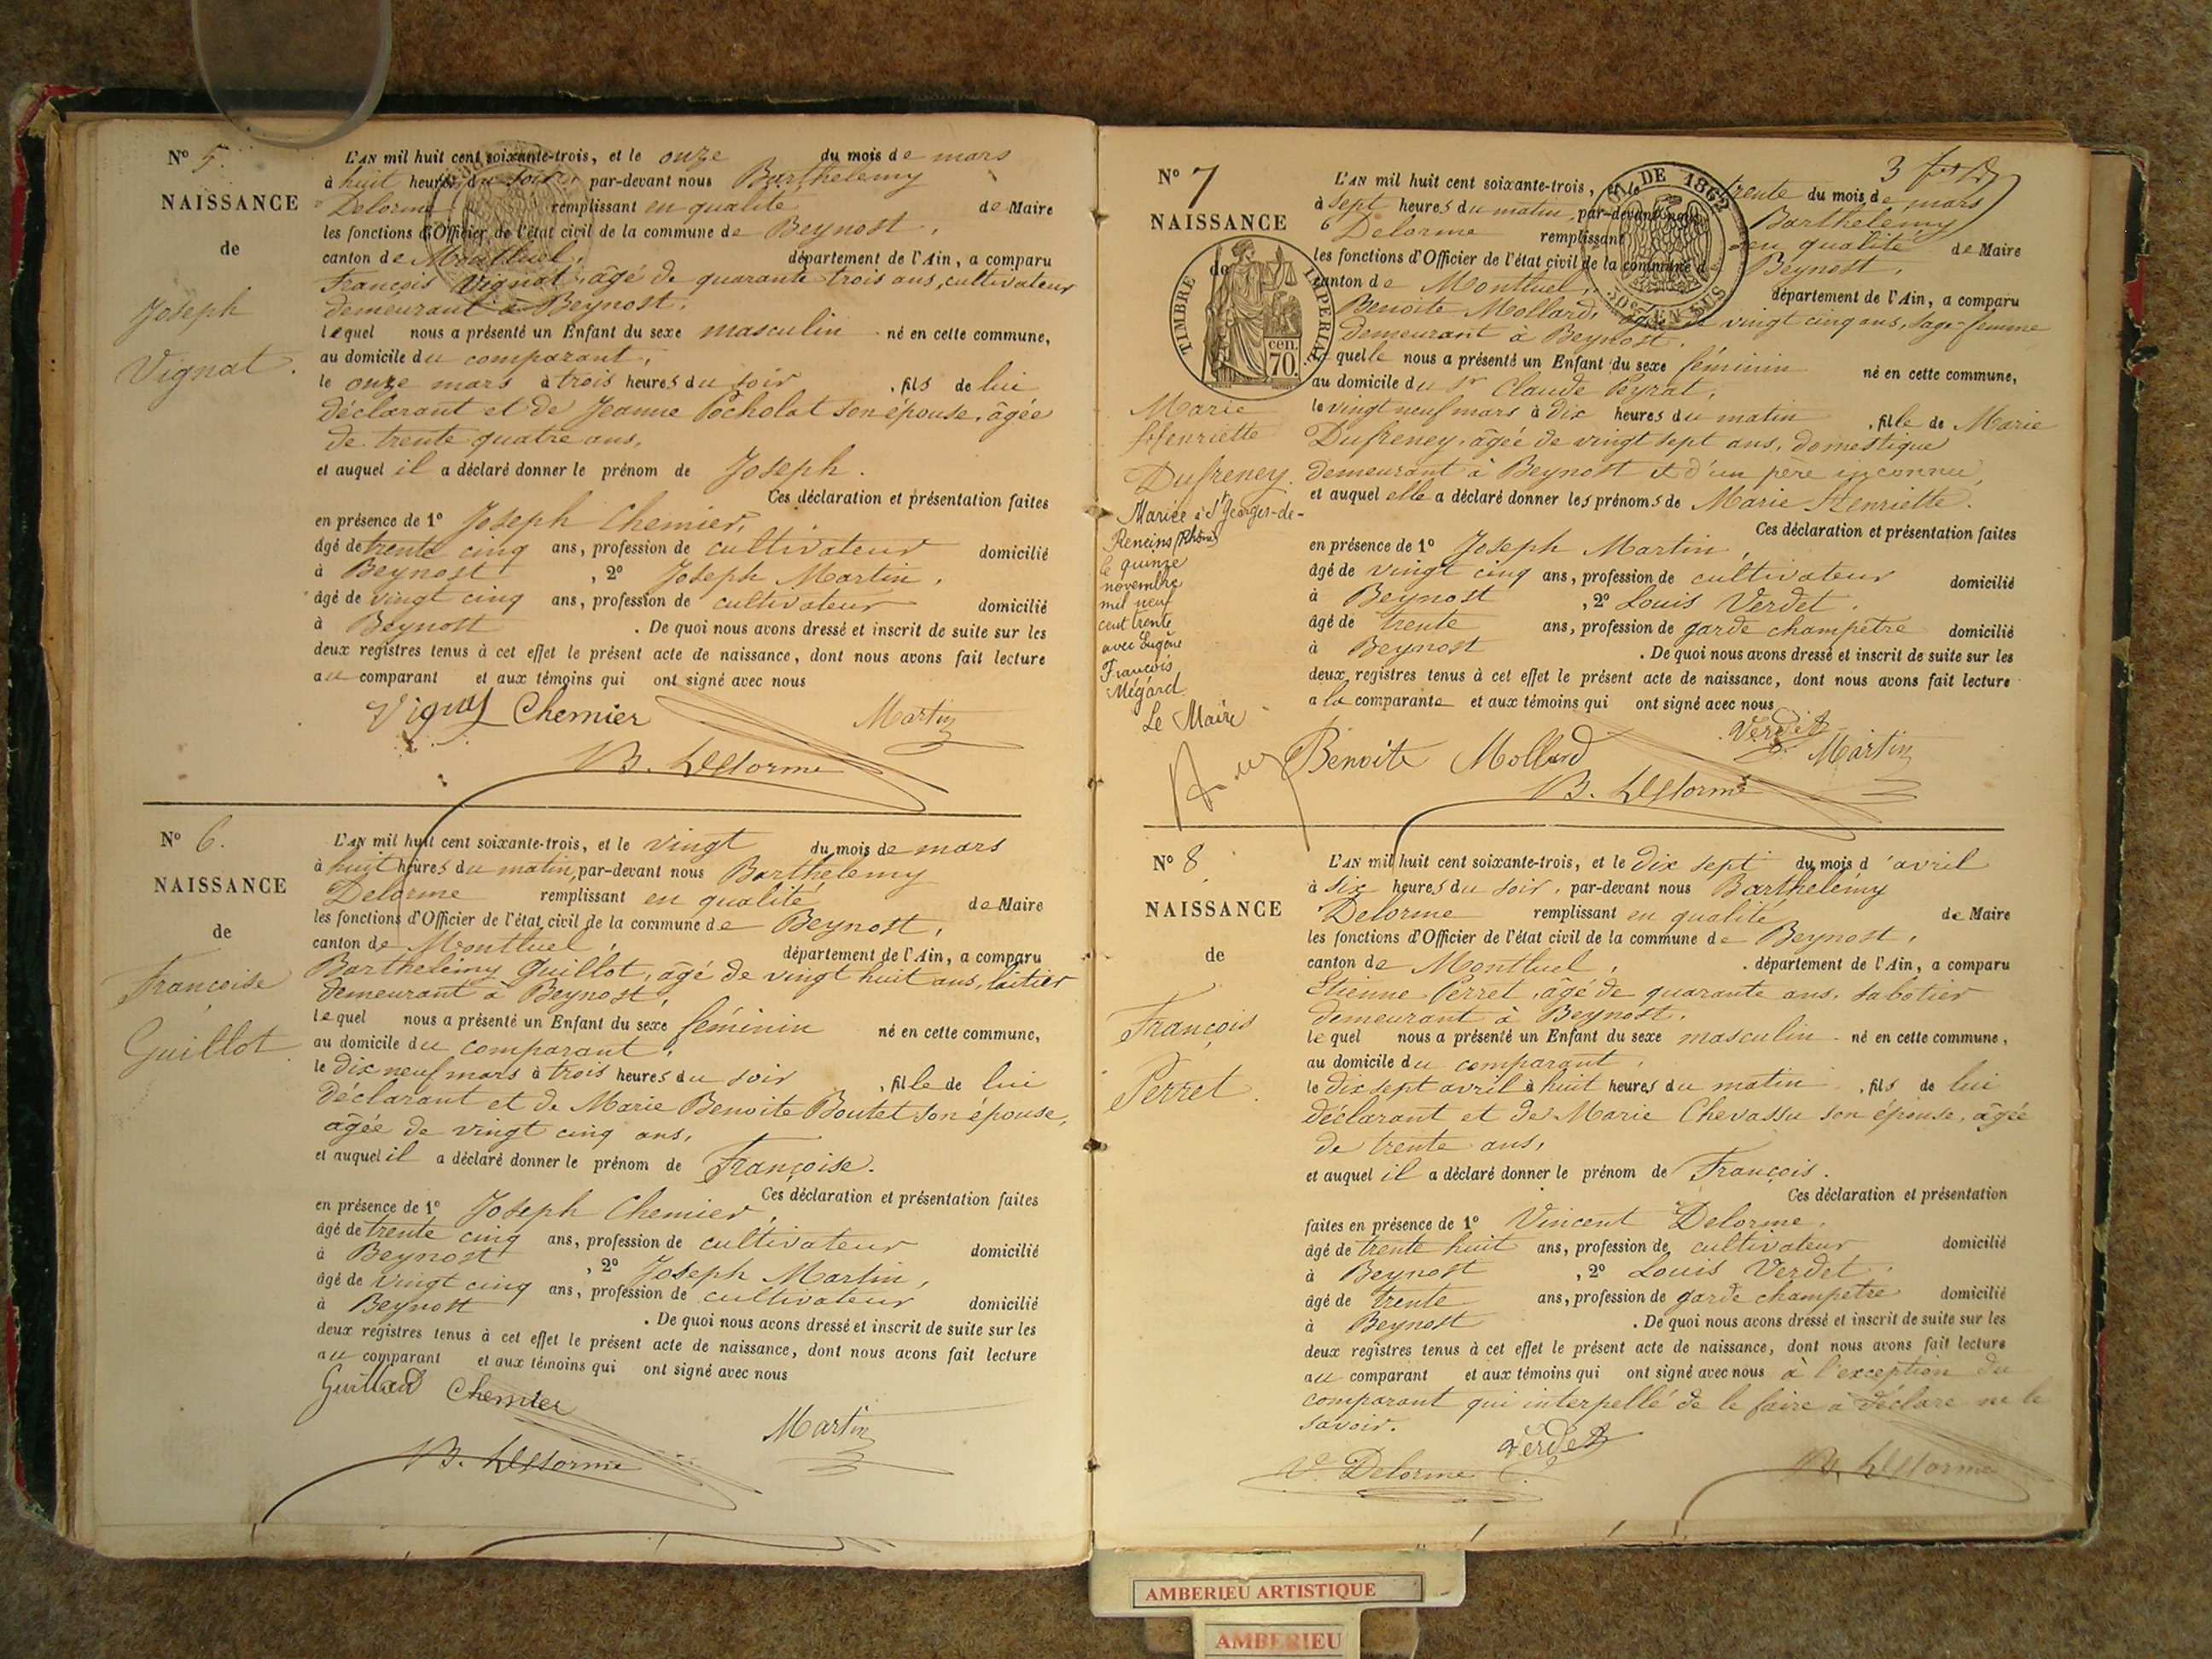 N° 5.
NAISSANCE
de
Joseph
Vignat.
L'AN mil huit cent soixante-trois, et le onze du mois de mars
à huit heures du soir par-devant nous Barthelemy
Delorme remplissant en qualité de Maire
les fonctions d'Officier de l'état civil de la commune de Beynost,
canton de Montluel, département de l'Ain, a comparu
François Vignat, âgé de quarante trois ans, cultivateur
demeurant à Beynost.
lequel nous a présenté un Enfant du sexe masculin né en cette commune,
au domicile du comparant,
le onze mars à trois heures du soir, fils de lui
déclarant et de Jeanne Pocholat son épouse, âgée
de trente quatre ans,
et auquel il a déclaré donner le prénom de Joseph.
Ces déclaration et présentation faites
en présence de 1° Joseph Chemier,
âgé de trente cinq ans, profession de cultivateur domicilié
à Beynost, 2° Joseph Martin,
âgé de vingt cinq ans, profession de cultivateur domicilié
à Beynost. De quoi nous avons dressé et inscrit de suite sur les
deux registres tenus à cet effet le présent acte de naissance, dont nous avons fait lecture
au comparant et aux témoins qui ont signé avec nous
Vignat Chemier Martin
B. Delorme
N° 6.
NAISSANCE
de
Françoise
Guillot.
L'AN mil huit cent soixante-trois, et le vingt du mois de mars
à huit heures du matin, par-devant nous Barthelemy
Delorme remplissant en qualité de Maire
les fonctions d'Officier de l'état civil de la commune de Beynost,
canton de Montluel, département de l'Ain, a comparu
Barthelémy Guillot, âgé de vingt huit ans, laitier
demeurant à Beynost,
lequel nous a présenté un Enfant du sexe féminin né en cette commune,
au domicile du comparant,
le dix neuf mars à trois heures du soir, fille de lui
déclarant et de Marie Benoite Boutet son épouse,
âgée de vingt cinq ans,
et auquel il a déclaré donner le prénom de Françoise.
Ces déclaration et présentation faites
en présence de 1° Joseph Chemier,
âgé de trente cinq ans, profession de cultivateur domicilié
à Beynost, 2° Joseph Martin,
âgé de vingt cinq ans, profession de cultivateur domicilié
à Beynost. De quoi nous avons dressé et inscrit de suite sur les
deux registres tenus à cet effet le présent acte de naissance, dont nous avons fait lecture
au comparant et aux témoins qui ont signé avec nous
Chemier
Martin
B. Delorme
N° 7
NAISSANCE
de
TIMBRE IMPERIAL
70 cen.
DE 1862
EN SUS
Marie
Henriette
Dufreney.
Mariée à St Georges-de-
Reneins (Rhône)
le quinze
novembre
mil neuf
cent trente
avec Eugène
François
Mégard
Le Maire
L'AN mil huit cent soixante-trois, et le trente du mois de mars
à sept heures du matin, par-devant nous Barthelemy
Delorme remplissant en qualité de Maire
les fonctions d'Officier de l'état civil de la commune de Beynost,
canton de Montluel, département de l'Ain, a comparu
Benoite Mollard, âgée de vingt cinq ans, sage-femme
demeurant à Beynost.
laquelle nous a présenté un Enfant du sexe féminin né en cette commune,
au domicile du Sr Claude Peyrat,
le vingt neuf mars à dix heures du matin, fille de Marie
Dufreney, âgée de vingt sept ans, domestique
demeurant à Beynost et d'un père inconnu,
et auquel elle a déclaré donner les prénoms de Marie Henriette.
Ces déclaration et présentation faites
en présence de 1° Joseph Martin,
âgé de vingt cinq ans, profession de cultivateur domicilié
à Beynost, 2° Louis Verdet.
âgé de trente ans, profession de garde champetre domicilié
à Beynost. De quoi nous avons dressé et inscrit de suite sur les
deux registres tenus à cet effet le présent acte de naissance, dont nous avons fait lecture
a la comparante et aux témoins qui ont signé avec nous
Verdet
Benoite Mollard Martin
B. Delorme
N° 8.
NAISSANCE
de
François
Perret.
L'AN mil huit cent soixante-trois, et le dix sept du mois d'avril
à six heures du soir, par-devant nous Barthelémy
Delorme remplissant en qualité de Maire
les fonctions d'Officier de l'état civil de la commune de Beynost,
canton de Montluel, département de l'Ain, a comparu
Etienne Perret, âgé de quarante ans, sabotier
demeurant à Beynost.
lequel nous a présenté un Enfant du sexe masculin né en cette commune,
au domicile du comparant,
le dix sept avril à huit heures du matin, fils de lui
déclarant et de Marie Chevassu son épouse, âgée
de trente ans,
et auquel il a déclaré donner le prénom de François.
Ces déclaration et présentation
faites en présence de 1° Vincent Delorme,
âgé de trente huit ans, profession de cultivateur domicilié
à Beynost, 2° Louis Verdet,
âgé de trente ans, profession de garde champetre domicilié
à Beynost. De quoi nous avons dressé et inscrit de suite sur les
deux registres tenus à cet effet le présent acte de naissance, dont nous avons fait lecture
au comparant et aux témoins qui ont signé avec nous à l'exception du
comparant qui interpellé de le faire a déclaré ne le
savoir.
Verdet
V. Delorme B. Delorme
AMBERIEU ARTISTIQUE
AMBERIEU